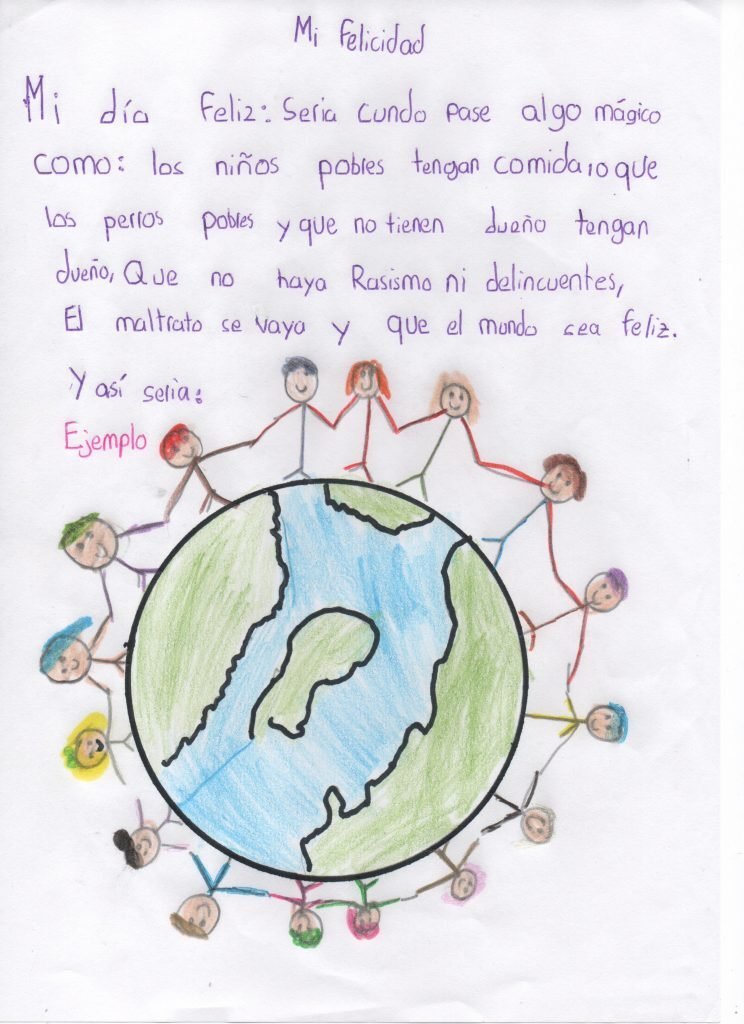 Mi Felicidad
Mi día Feliz: Seria cundo pase algo mágico
como: los niños pobres tengan comida, o que
los perros pobles y que no tienen dueño tengan
dueño, Que no haya Rasismo ni delincuentes,
El maltrato se vaya y que el mundo sea feliz.
Y así seria:
Ejemplo